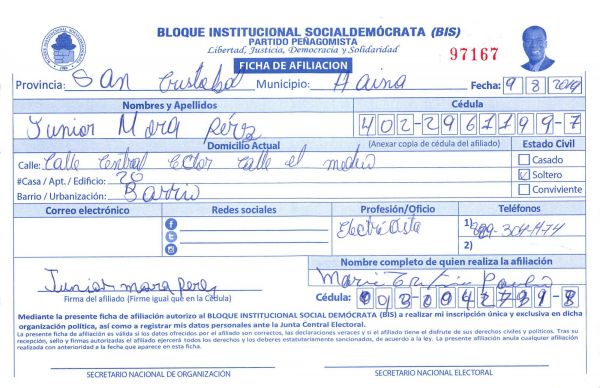 BLOQUE INSTITUCIONAL SOCIALDEMÓCRATA (BIS)
PARTIDO PEÑAGOMISTA
Libertad, Justicia, Democracia y Solidaridad
FICHA DE AFILIACION
97167
Provincia: San Cristobal Municipio: Haina Fecha: 9 8 2019
Nombres y Apellidos Cédula
Junior Mora Pérez 402-2961199-7
Domicilio Actual (Anexar copia de cédula del afiliado) Estado Civil
Calle: Calle Central Ector Calle el medio
Casado
#Casa / Apt. / Edificio: 20
Soltero
Barrio / Urbanización: Barrio
Conviviente
Correo electrónico Redes sociales Profesión/Oficio Teléfonos
Electricista 1) 829-304-1174
2)
Nombre completo de quien realiza la afiliación
Junior mora perez Maria
Firma del afiliado (Firme igual que en la Cédula) Cédula: 093-0042739-8
Mediante la presente ficha de afiliación autorizo al BLOQUE INSTITUCIONAL SOCIAL DEMÓCRATA (BIS) a realizar mi inscripción única y exclusiva en dicha
organización política, así como a registrar mis datos personales ante la Junta Central Electoral.
La presente ficha de afiliación es válida si los datos ofrecidos por el afiliado son correctos, las declaraciones veraces y si el afiliado tiene el disfrute de sus derechos civiles y políticos. Tras su
recepción, sello y firmas autorizadas el afiliado ejercerá todos los derechos y los deberes estatutariamente sancionados, de acuerdo a la ley. La presente afiliación anula cualquier afiliación
realizada con anterioridad a la fecha que aparece en esta ficha.
SECRETARIO NACIONAL DE ORGANIZACIÓN SECRETARIO NACIONAL ELECTORAL